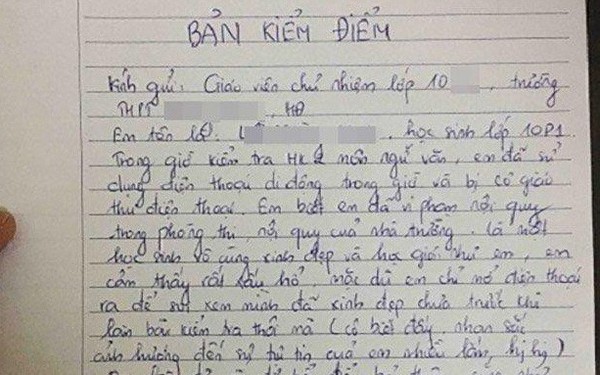 BẢN KIỂM ĐIỂM
Kính gửi: Giáo viên chủ nhiệm lớp 10 , trường
THPT , HĐ
Em tên là: , học sinh lớp 10P1.
Trong giờ kiểm tra HK 2 môn ngữ văn, em đã sử
dụng điện thoại di động trong giờ và bị cô giáo
thu điện thoại. Em biết em đã vi phạm nội quy
trong phòng thi, nội quy của nhà trường. Là một
học sinh vô cùng xinh đẹp và học giỏi như em, em
cảm thấy rất xấu hổ, mặc dù em chỉ mở điện thoại
ra để soi xem mình đã xinh đẹp chưa trước khi
làm bài kiểm tra thôi mà (cô biết đấy, nhan sắc
ảnh hưởng đến sự tự tin của em nhiều lắm, hị hị)